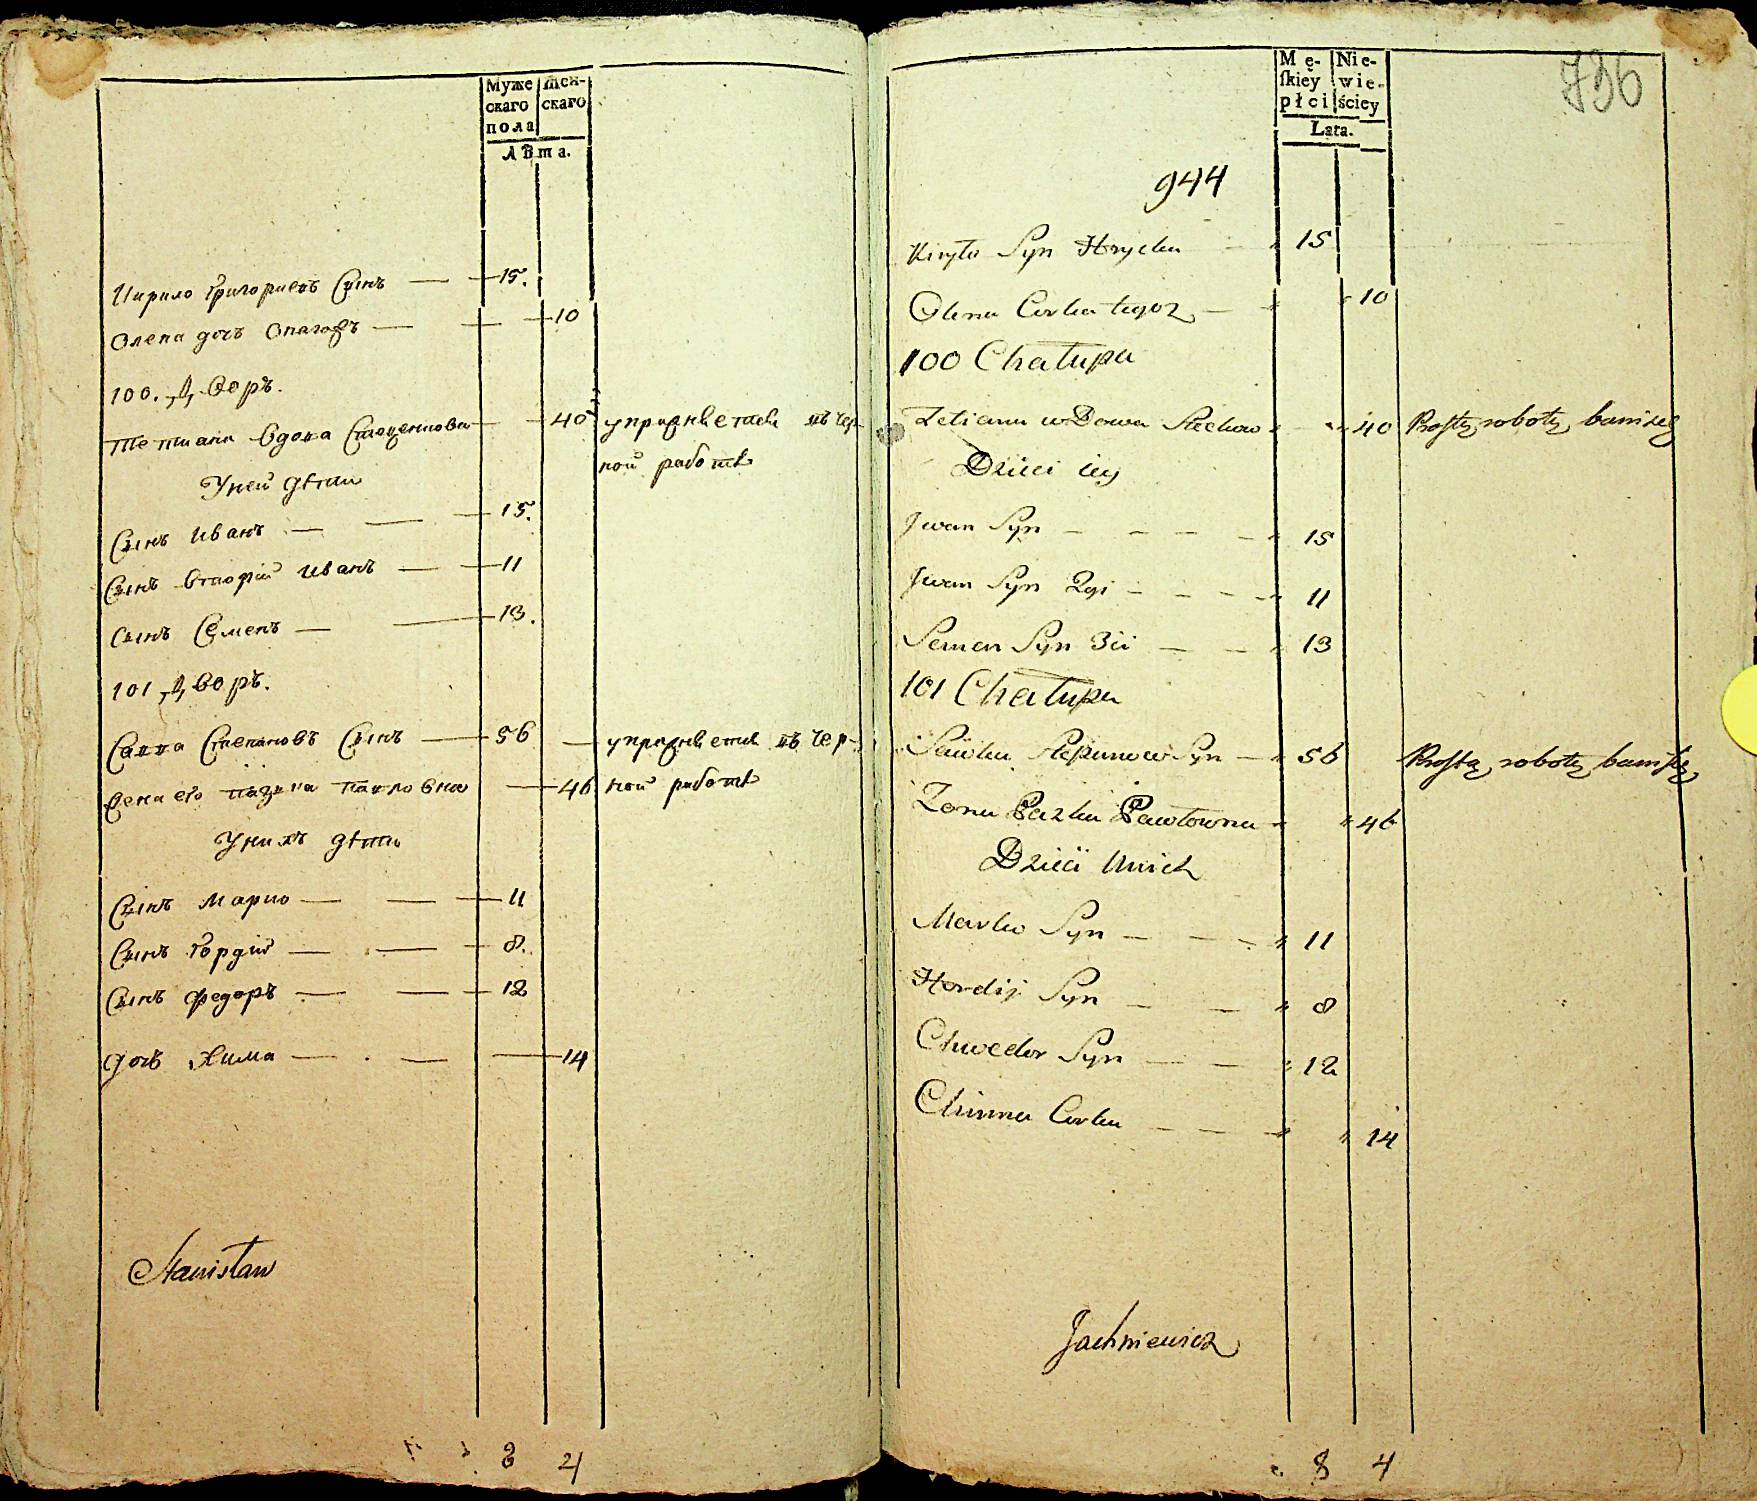 Муже
скаго
пола
Жен-
скаго
Лѣта.
Кирило Григориевъ Сынъ — 15.
Олена дочь Онагожъ — 10
100. Дворъ.
Тетиана Вдова Стеценкова — 40 упражняется въ чер-
ной работѣ
У ней дѣти
Сынъ Иванъ — 15.
Сынъ Вторій Иванъ — 11
Сынъ Семенъ — 13.
101 Дворъ.
Савка Степановъ Сынъ — 56 — упражняется въ чер-
Жена его Пазька Павловна — 46 ной работѣ
У нихъ дѣти
Сынъ Марко — 11
Сынъ Гордій — 8.
Сынъ Федоръ — 12
дочь Хима — 14
Stanisław
8 4
736
Mę-
ſkiey
płci
Nie-
wie-
ściey
Lata.
944
Kiryło Syn Hrycka — 15
Olena Corka tegoz — 10
100 Chałupa
Tetiana wDowa Stećkow 40 Prostą robotą bawi się
Dzieci iey
Jwan Syn — 15
Jwan Syn 2gi — 11
Semen Syn 3ci — 13
101 Chałupa
Sawka Stepanow Syn — 56 Prostą robotą bawi się
Zona Pazka Pawłowna 46
Dzieci Unich
Marko Syn — 11
Hordij Syn — 8
Chwedor Syn — 12
Chimma Corka — 14
Jachniewicz
8 4